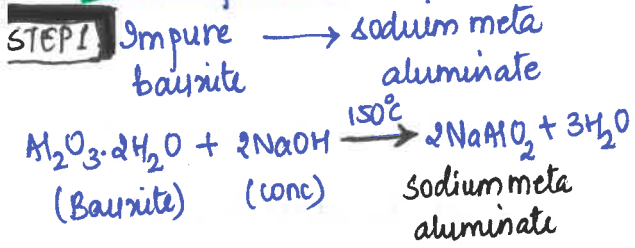 STEP 1 Impure ⟶ sodium meta
bauxite aluminate
Al₂O₃.2H₂O + 2NaOH ⟶ 150°C 2NaAlO₂ + 3H₂O
(Bauxite) (conc) sodium meta
aluminate